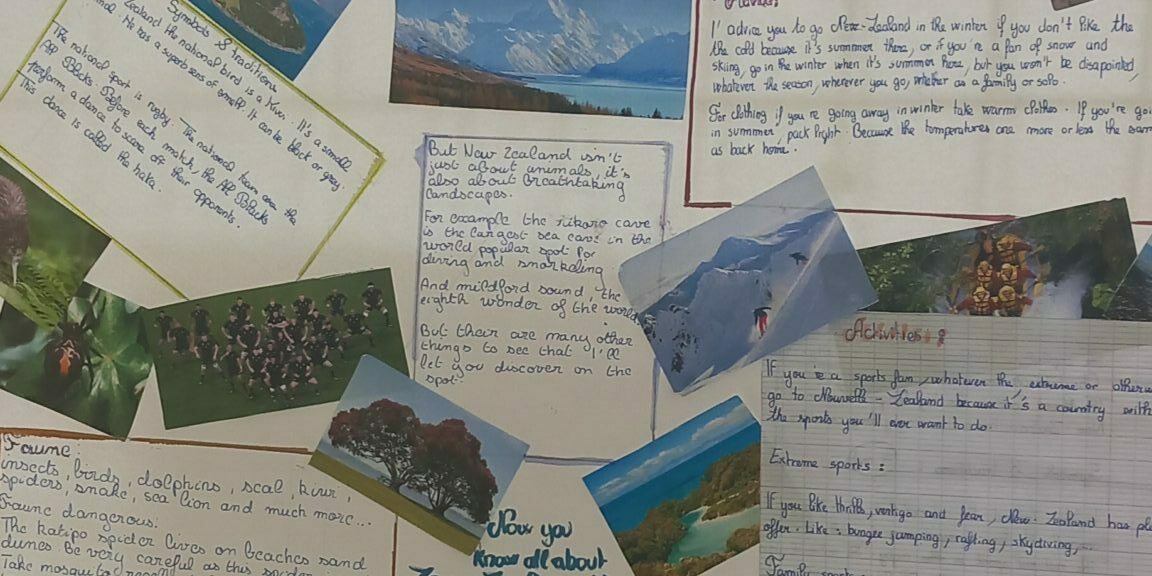 Symbols & traditions
Zealand the national bird is a Kiwi. It's a small
He has a superb sens of smell. It can be black or grey.
The national sport is rugby. The national team are the
All Blacks. Before each match, the All Blacks
perform a dance to scare off their opponents.
This dance is called the haka.
But New Zealand isn't
just about animals, it's
also about breathtaking
landscapes.
For example the rikoro cave
is the largest sea cave in the
world popular spot for
diving and snorkeling.
And mildford sound, the
eighth wonder of the world
But their are many other
things to see that I'll
let you discover on the
spot.
I'advice you to go New-Zealand in the winter if you don't like the
the cold because it's summmer there, or if you're a fan of snow and
skiing, go in the winter when it's summer here, but you won't be disapointed,
whatever the season, wherever you go, whether as a family or solo.
For clothing if you're going away in winter take warm clothes. If you're
in summer, pack light. Because the temperatures are more or less the
as back home.
Activities :
If you're a sports fan, whatever the extreme or
go to Nouvelle-Zealand because it's a country with
the sports you'll ever want to do.
Extreme sports :
If you like thrills, vertigo and fear, New Zealand has
offer. Like : bungee jumping, rafting, skydiving,...
Family
Faune:
insects, birds, dolphins, seal, kiwi,
spiders, snake, sea lion and much more...
Faune dangerous:
The katipo spider lives on beaches sand
dunes. Be very careful as this spider
Take mosquito
Now you
Know all about